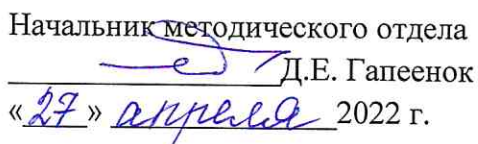 Начальник методического отдела
Д.Е. Гапеенок
«27» апреля 2022 г.